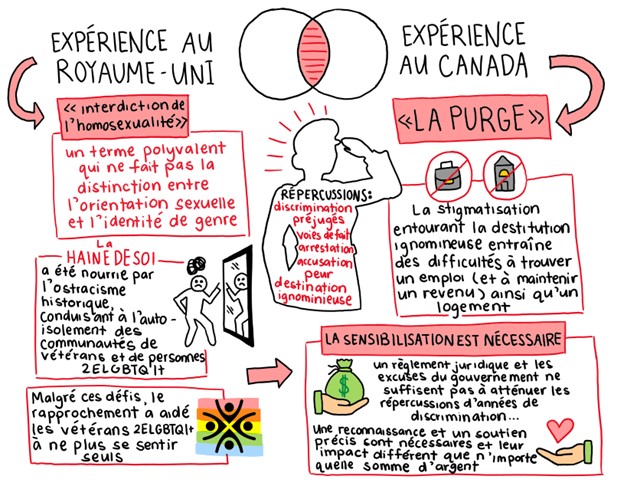 EXPÉRIENCE AU
ROYAUME-UNI
« interdiction de
l'homosexualité»
un terme polyvalent
qui ne fait pas la
distinction entre
l'orientation sexuelle
et l'identité de genre
La
HAINE DE SOI
a été nourrie par
l'ostracisme
historique,
conduisant à l'auto-
isolement des
communautés de
vétérans et de personnes
2ELGBTQI+
Malgré ces défis, le
rapprochement a aidé
les vétérans 2ELGBTQI+
à ne plus se sentir
seuls
RÉPERCUSSIONS:
discrimination
préjugés
voies de fait
arrestation
accusation
peur
destination
ignominieuse
EXPÉRIENCE
AU CANADA
«LA PURGE»
La stigmatisation
entourant la destitution
ignomineuse entraîne
des difficultés à trouver
un emploi (et à maintenir
un revenu) ainsi qu'un
logement
LA SENSIBILISATION EST NÉCESSAIRE
$
un règlement juridique et les
excuses du gouvernement ne
suffisent pas à atténuer les
répercussions d'années de
discrimination...
Une reconnaissance et un soutien
précis sont nécessaires et leur
impact différent que n'importe
quelle somme d'argent